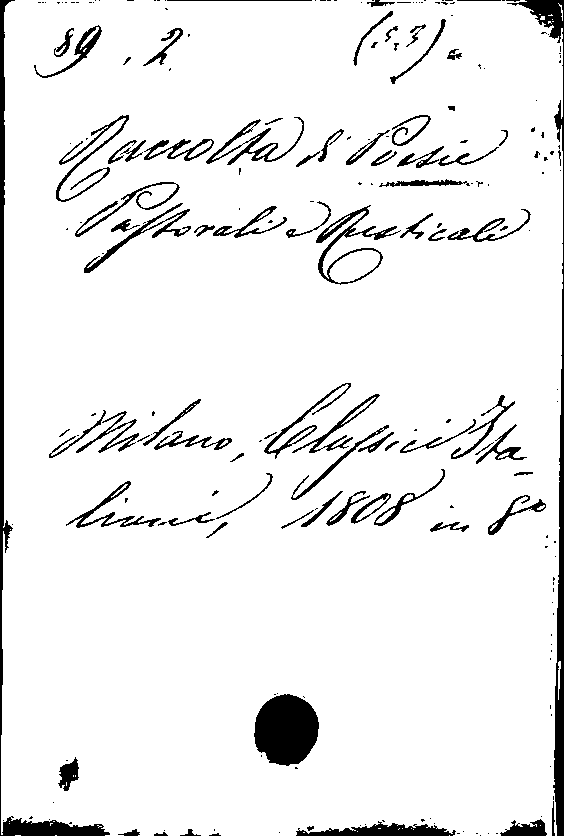 89.2 (.5.3).
Raccolta di Poesie
Pastorali e Rusticali
Milano, Classici Ita-
liani, 1808 in 8º